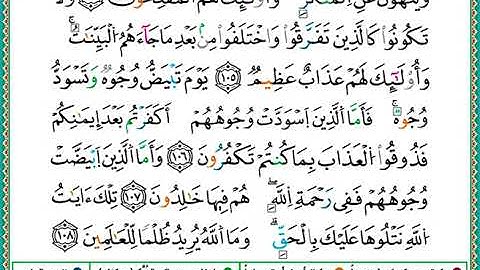 وَيَنْهَوْنَ عَنِ الْمُنْكَرِ ۚ وَأُولَٰئِكَ هُمُ الْمُفْلِحُونَ ۝ وَلَا
تَكُونُوا كَالَّذِينَ تَفَرَّقُوا وَاخْتَلَفُوا مِنْ بَعْدِ مَا جَاءَهُمُ الْبَيِّنَاتُ ۚ
وَأُولَٰئِكَ لَهُمْ عَذَابٌ عَظِيمٌ ۝١٠٥ يَوْمَ تَبْيَضُّ وُجُوهٌ وَتَسْوَدُّ
وُجُوهٌ ۚ فَأَمَّا الَّذِينَ اسْوَدَّتْ وُجُوهُهُمْ أَكَفَرْتُمْ بَعْدَ إِيمَانِكُمْ
فَذُوقُوا الْعَذَابَ بِمَا كُنْتُمْ تَكْفُرُونَ ۝١٠٦ وَأَمَّا الَّذِينَ ابْيَضَّتْ
وُجُوهُهُمْ فَفِي رَحْمَةِ اللَّهِ ۖ هُمْ فِيهَا خَالِدُونَ ۝١٠٧ تِلْكَ ءَايَاتُ
اللَّهِ نَتْلُوهَا عَلَيْكَ بِالْحَقِّ ۗ وَمَا اللَّهُ يُرِيدُ ظُلْمًا لِلْعَالَمِينَ ۝١٠٨